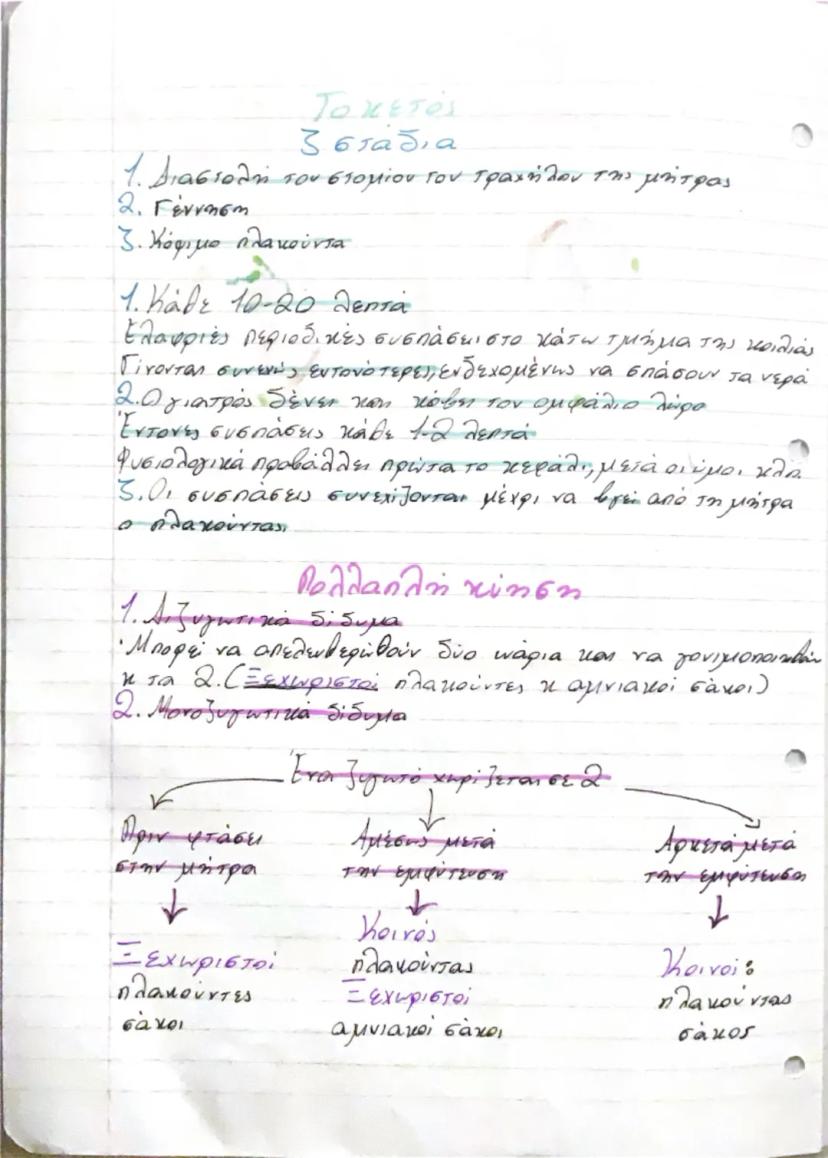 Τοκετός
3 στάδια
1. Διαστολή του στομίου του τραχήλου της μήτρας
2. Γέννηση
3. Κόψιμο πλακούντα
1. Κάθε 10-20 λεπτά
Ελαφριές περιοδικές συσπάσεις στο κάτω τμήμα της κοιλιάς
Γίνονται συνεχώς εντονότερες, ενδεχομένως να σπάσουν τα νερά
2. Ο γιατρός δένει και κόβει τον ομφάλιο λώρο
Έντονες συσπάσεις κάθε 1-2 λεπτά
Φυσιολογικά προβάλλει πρώτα το κεφάλι, μετά οι ώμοι κλπ
3. Οι συσπάσεις συνεχίζονται μέχρι να βγει από τη μήτρα
ο πλακούντας.
Πολλαπλή κύηση
1. Διζυγωτικά δίδυμα
·Μπορεί να απελευθερωθούν δύο ωάρια και να γονιμοποιηθούν
κ τα 2. (Ξεχωριστοί πλακούντες κ αμνιακοί σάκοι)
2. Μονοζυγωτικά δίδυμα
Ένα ζυγωτό χωρίζεται σε 2
Πριν φτάσει στην μήτρα
Ξεχωριστοί
πλακούντες
σάκοι
Αμέσως μετά
την εμφύτευση
Κοινός
πλακούντας
Ξεχωριστοί
αμνιακοί σάκοι
Αρκετά μετά
την εμφύτευση
Κοινοί:
πλακούντας
σάκος